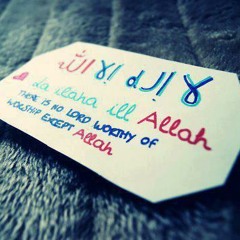 لا إله إلا الله
La ilaha ill Allah
THERE IS NO LORD WORTHY OF
WORSHIP EXCEPT Allah